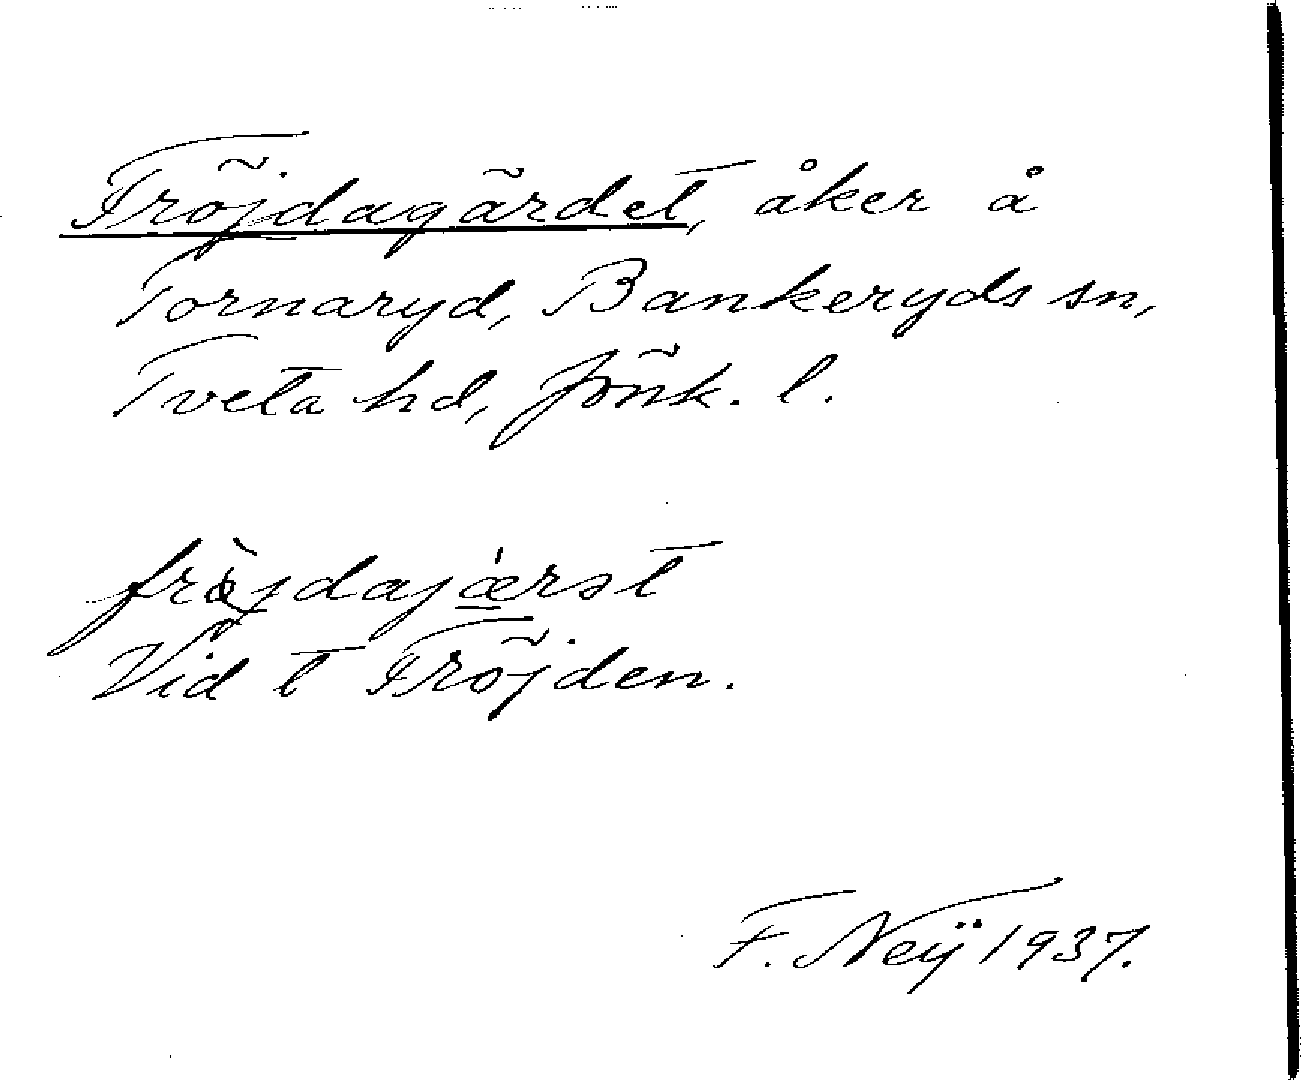 Fröjdagärdet, åker å
Tornaryd, Bankeryds sn,
Tveta hd, Jönk. l.
fröjdajærət
Vid t Fröjden.
F. Neÿ 1937.